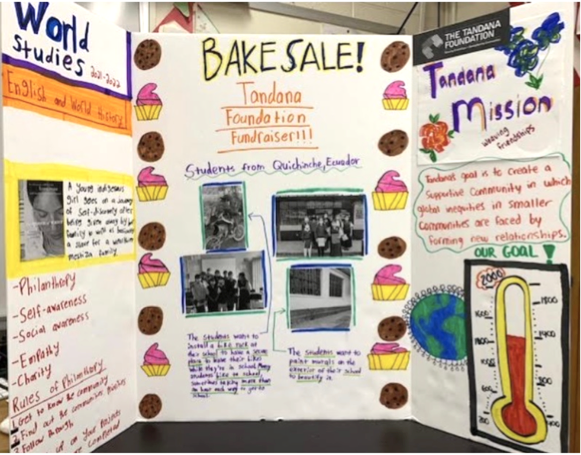 World
Studies
2021-2022
English and World History!
A young indigenous
girl goes on a journey
of self-discovery after
being given away by her
family to work as
a slave for a
mestiza family
-Philanthropy
-Self-awareness
-Social awareness
-Empathy
-Charity
Rules of Philanthropy
1. Get to know the community
2. Find out the communities
3. Follow through
up on your
BAKE SALE!
Tandana
Foundation
Fundraiser!!!
Students from Quichinche, Ecuador
The students want to
install a bike rack at
their school to have a
place to have their bikes
while they're in school. Many
students bike to school,
sometimes taking more than
an hour each way to get to
school.
The students want to
paint murals on the
exterior of their school
to beautify it.
THE TANDANA
FOUNDATION
Tandana
Mission
weaving
friendships
Tandana's goal is to create a
supportive community in which
global inequities in smaller
communities are faced by
forming new relationships.
OUR GOAL!
2000